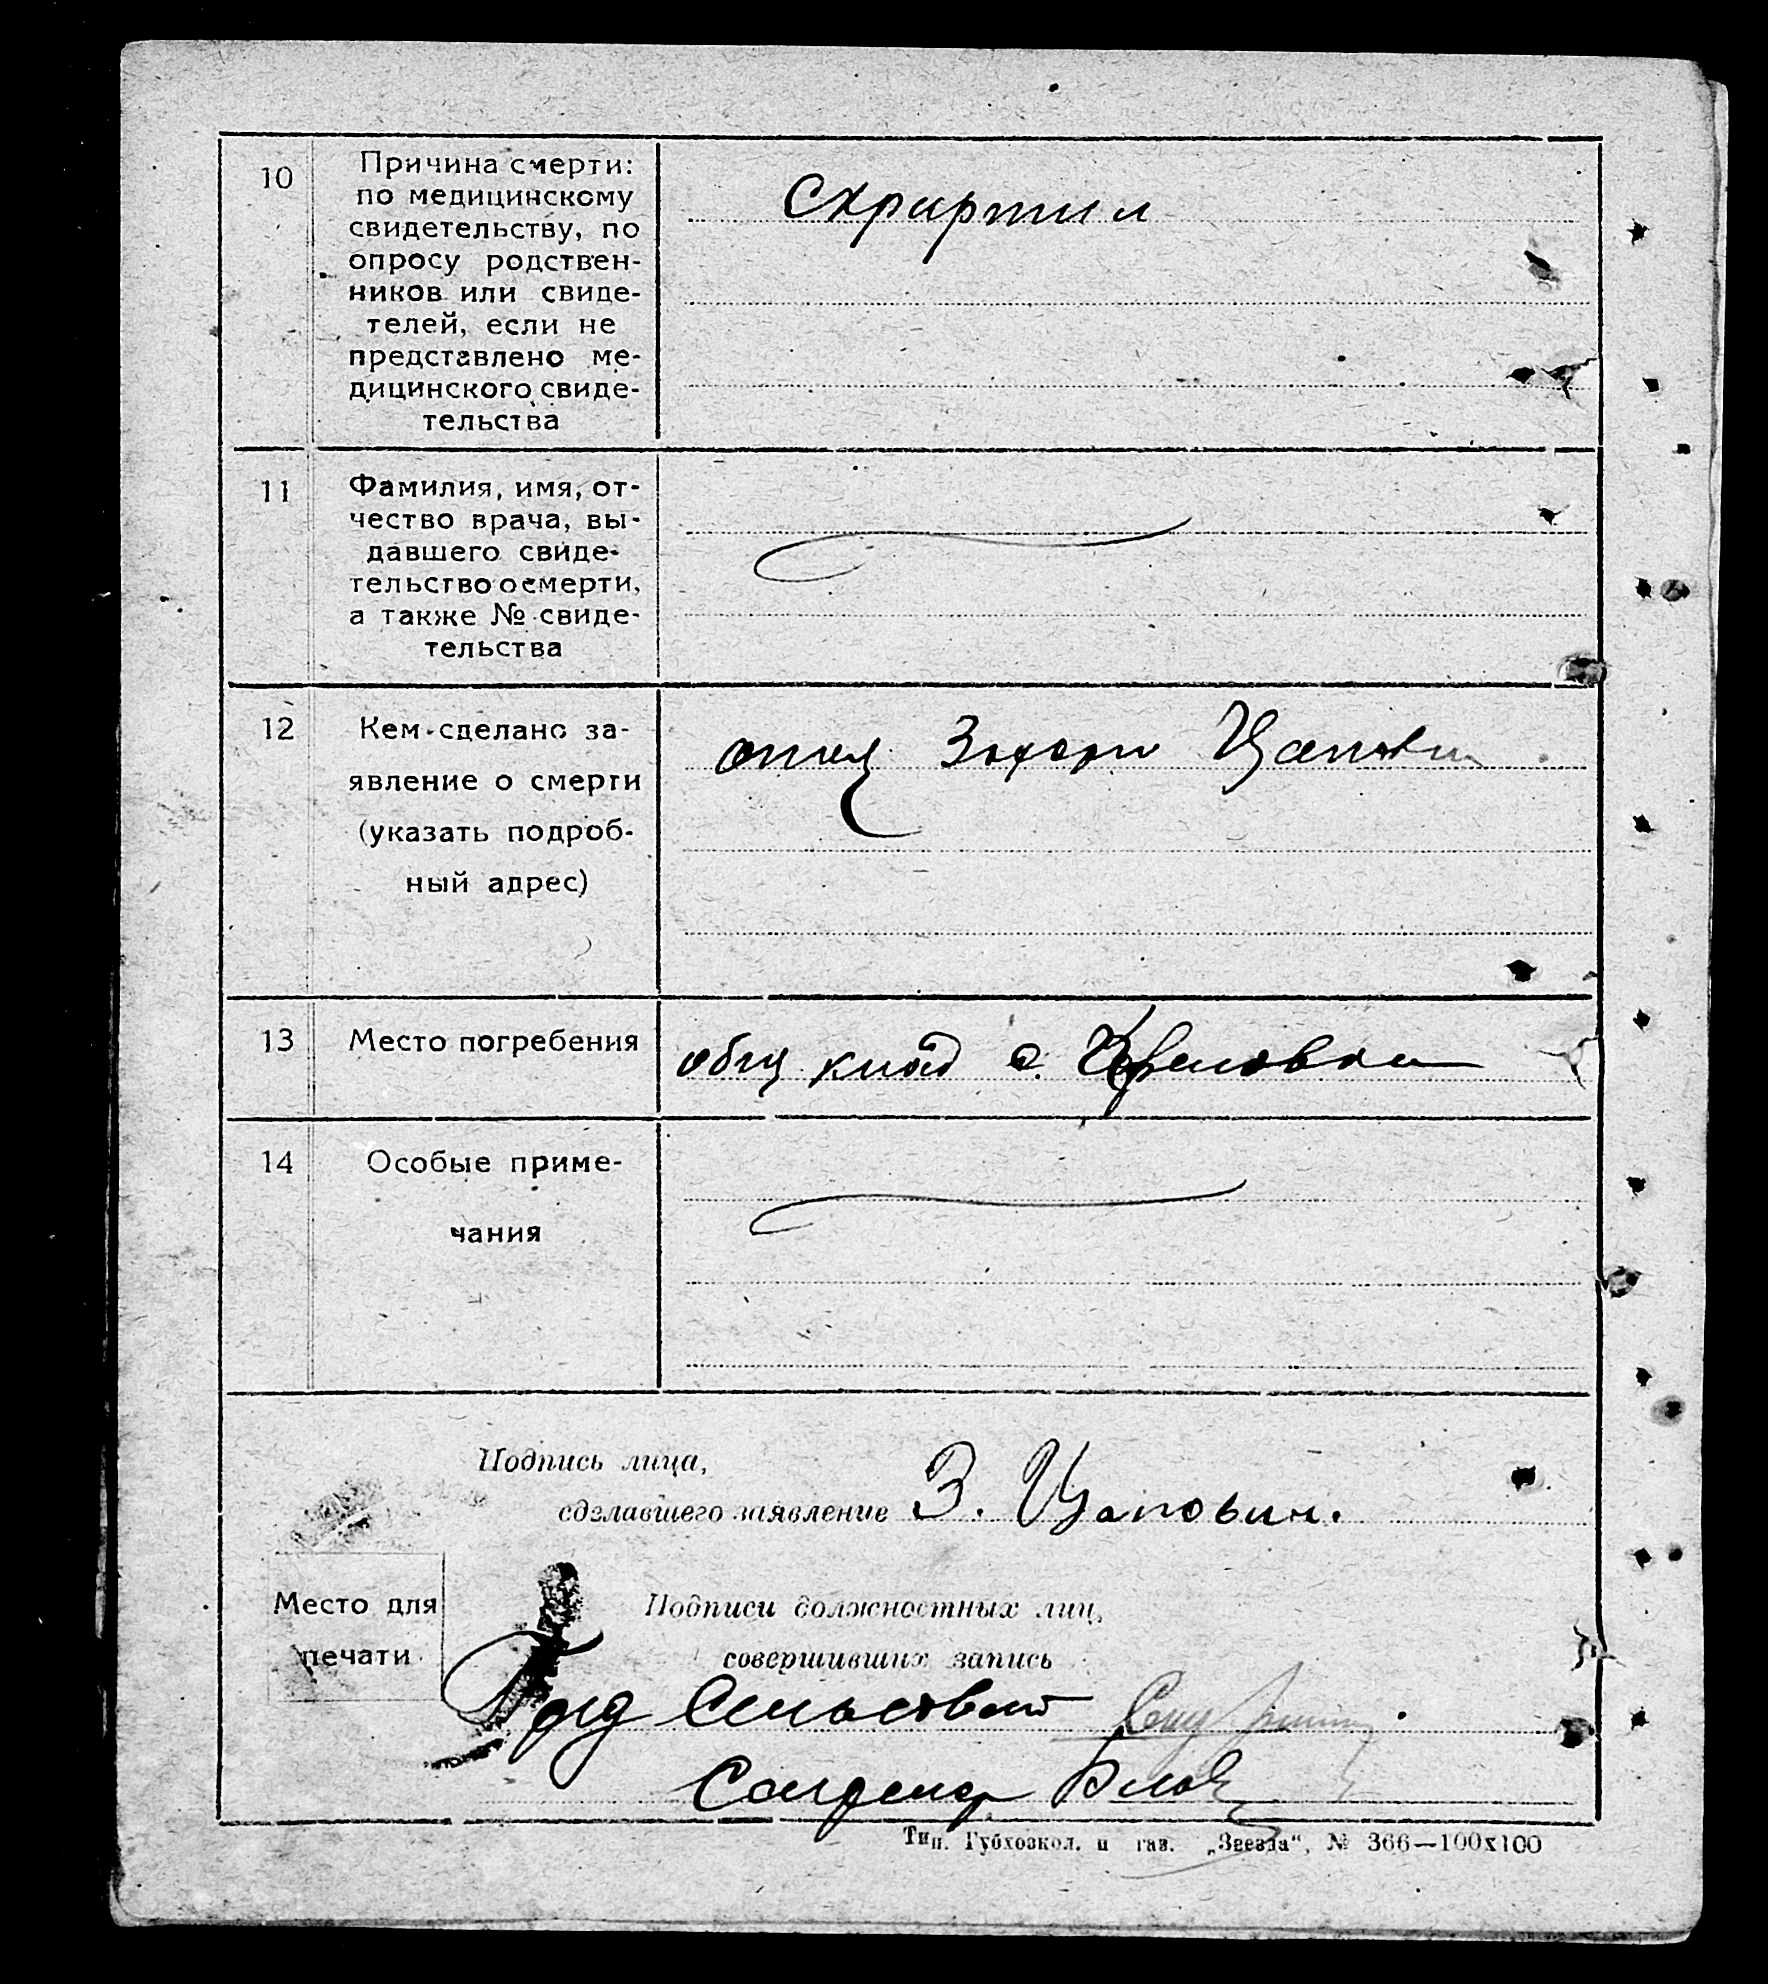 10
Причина смерти:
по медицинскому
свидетельству, по
опросу родствен-
ников или свиде-
телей, если не
представлено ме-
дицинского свиде-
тельства
11
Фамилия, имя, от-
чество врача, вы-
давшего свиде-
тельство о смерти,
а также № свиде-
тельства
12
Кем сделано за-
явление о смерти
(указать подроб-
ный адрес)
отец
13
Место погребения
общ
14
Особые приме-
чания
Подпись лица,
сделавшего заявление З. Цаповин.
Место для
печати
Подписи должностных лиц,
совершивших запись
Тип. Губхозкол. и газ. „Звезда“, № 366—100х100